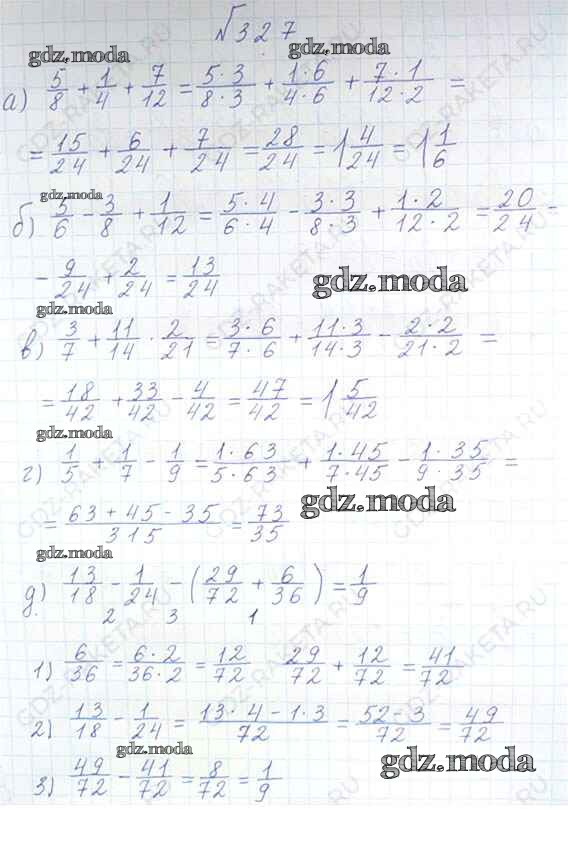 №327
gdz.moda gdz.moda
а) 5/8 + 1/4 + 7/12 = 5·3/8·3 + 1·6/4·6 + 7·1/12·2 =
= 15/24 + 6/24 + 7/24 = 28/24 = 1 4/24 = 1 1/6
gdz.moda
б) 5/6 - 3/8 + 1/12 = 5·4/6·4 - 3·3/8·3 + 1·2/12·2 = 20/24 -
- 9/24 + 2/24 = 13/24
gdz.moda
gdz.moda
в) 3/7 + 11/14 · 2/21 = 3·6/7·6 + 11·3/14·3 - 2·2/21·2 =
= 18/42 + 33/42 - 4/42 = 47/42 = 1 5/42
gdz.moda
г) 1/5 + 1/7 - 1/9 = 1·63/5·63 + 1·45/7·45 - 1·35/9·35 =
= 63+45-35/315 = 73/35
gdz.moda
gdz.moda
д) 13/18 - 1/24 - (29/72 + 6/36) = 1/9
2 3 1
1) 6/36 = 6·2/36·2 = 12/72 29/72 + 12/72 = 41/72
2) 13/18 - 1/24 = 13·4-1·3/72 = 52-3/72 = 49/72
gdz.moda
gdz.moda
3) 49/72 - 41/72 = 8/72 = 1/9
GDZ-RAKETA.RU